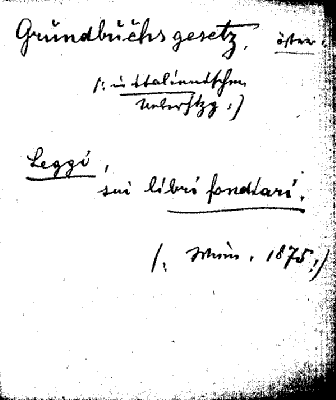 Grundbuchsgesetz, öster.
(: in italienischer
Übersetzg :)
Leggi,
sui libri fondiari.
(: Wien, 1875 :)